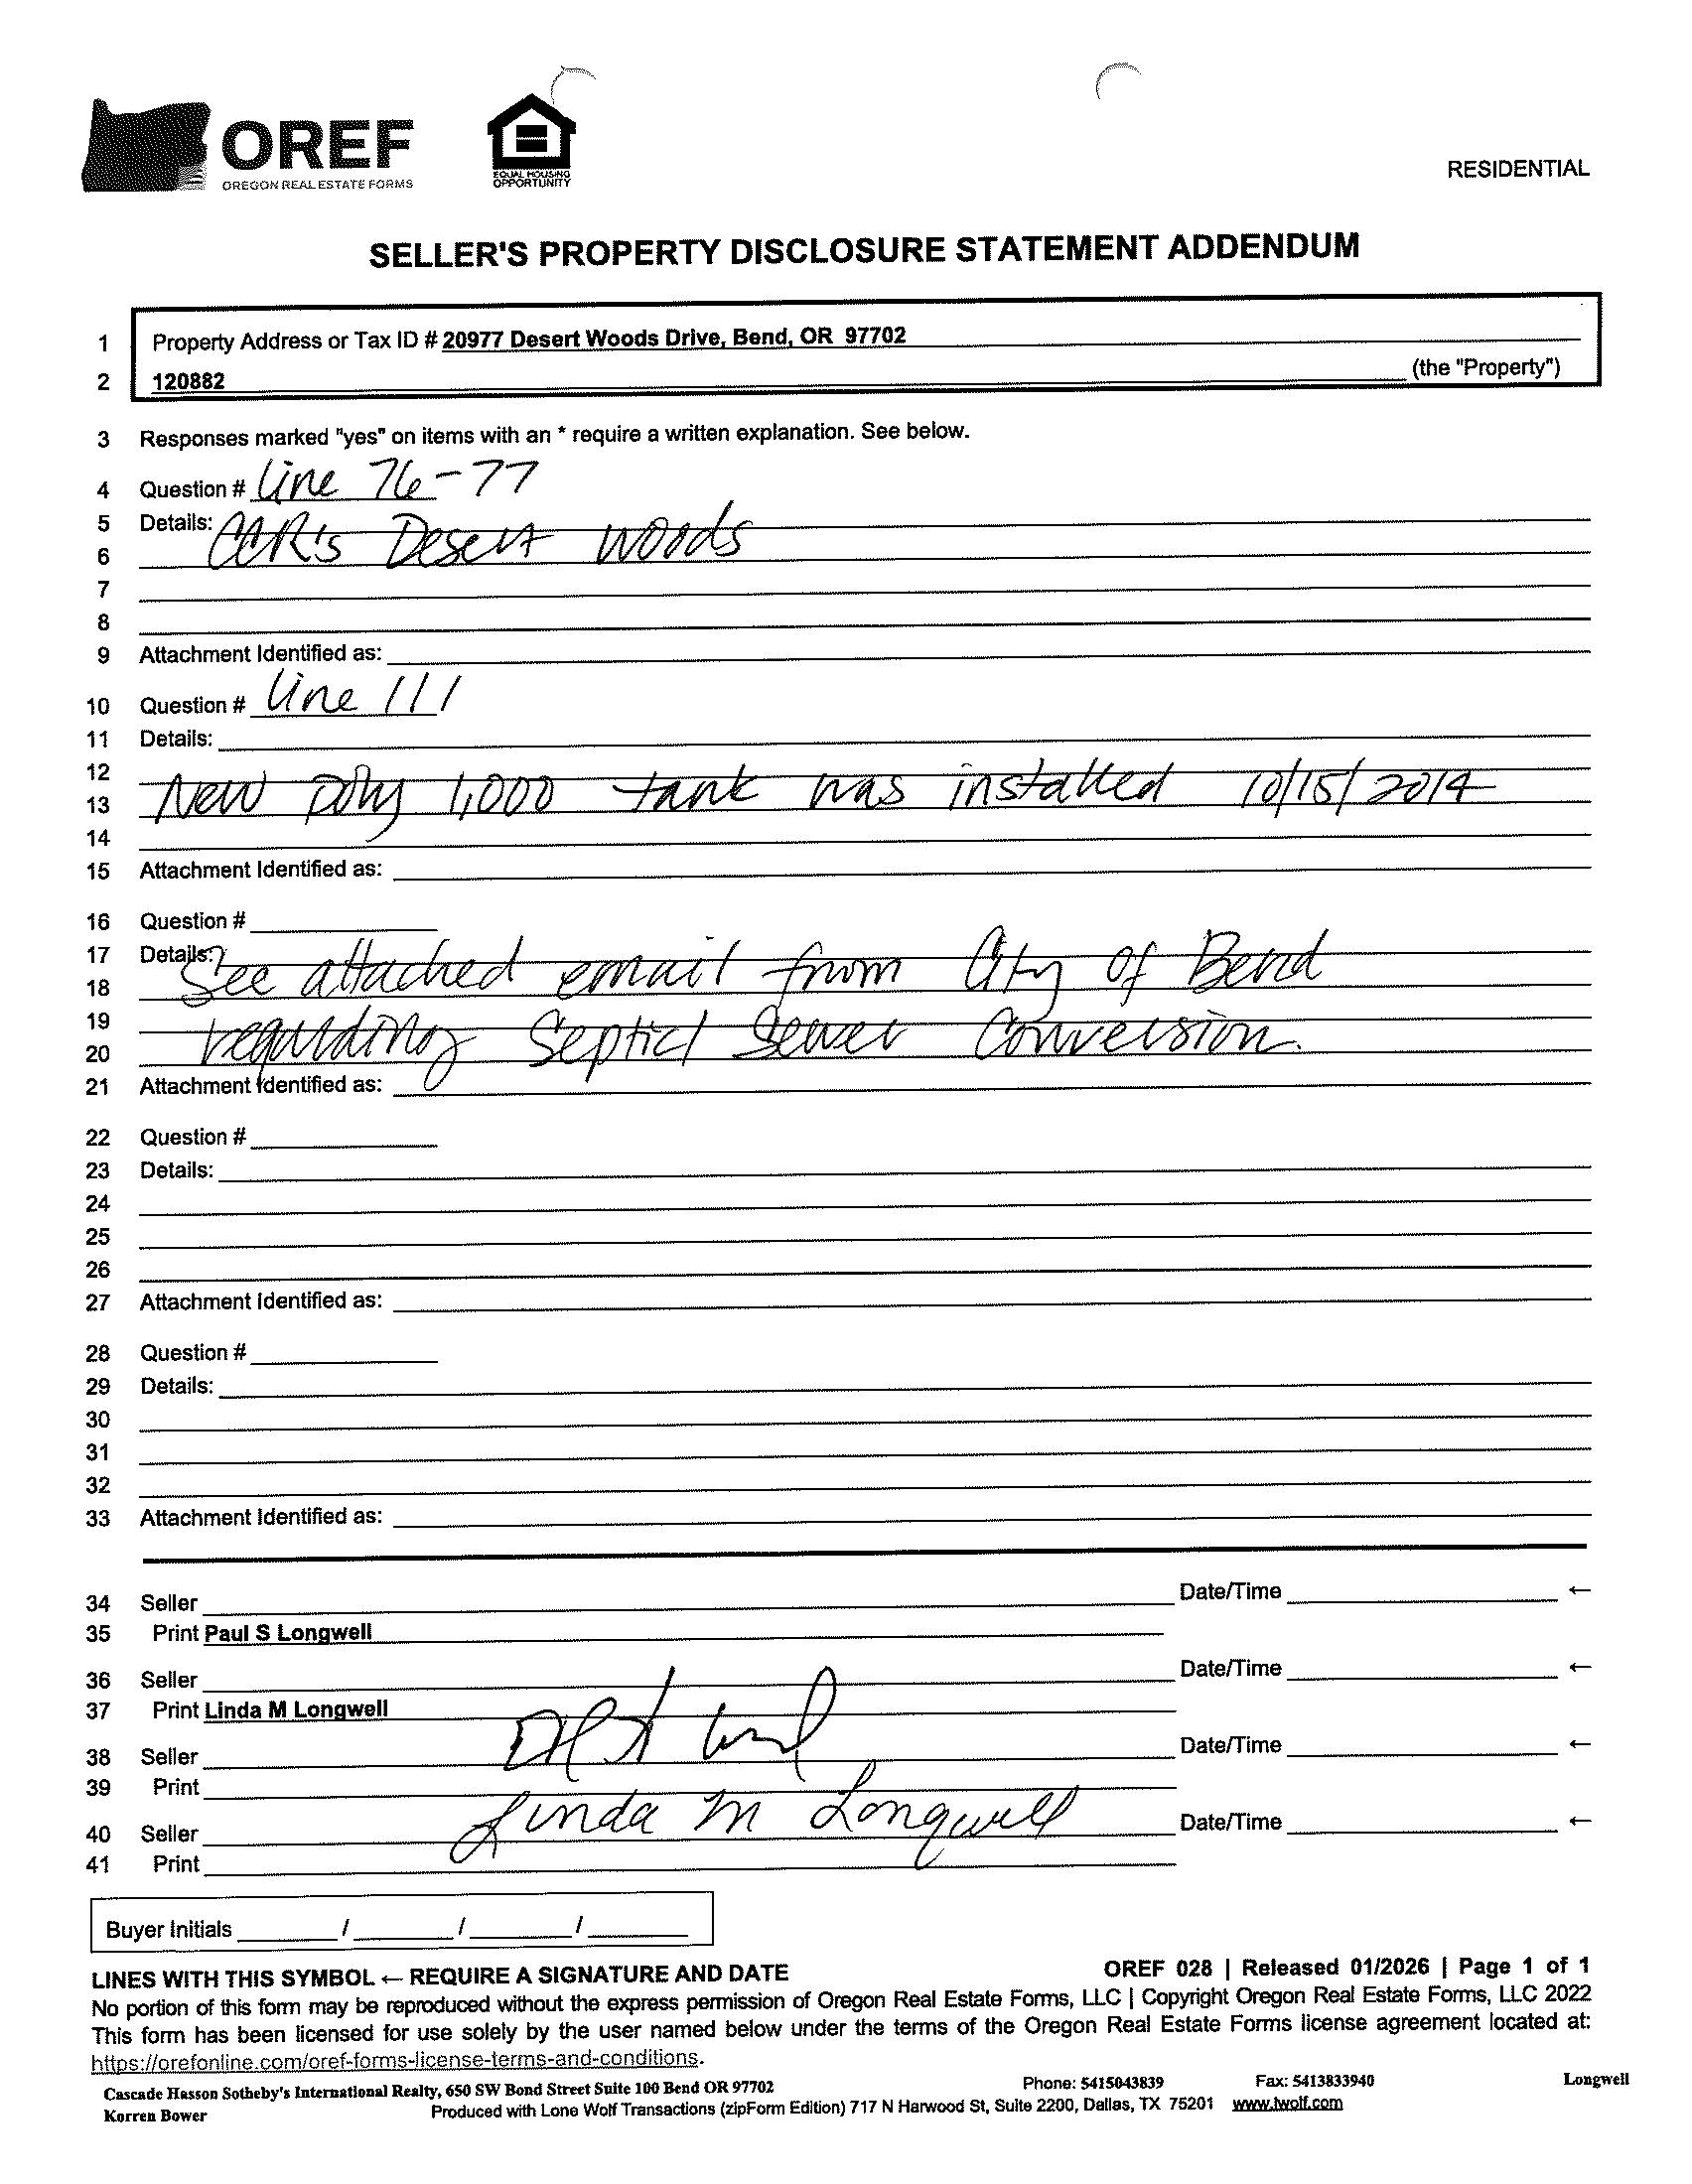 OREF
OREGON REAL ESTATE FORMS
EQUAL HOUSING
OPPORTUNITY
RESIDENTIAL
SELLER'S PROPERTY DISCLOSURE STATEMENT ADDENDUM
1 Property Address or Tax ID # 20977 Desert Woods Drive, Bend, OR 97702
2 120882 (the "Property")
3 Responses marked "yes" on items with an * require a written explanation. See below.
4 Question # Line 76-77
5 Details: CCR's Desert Woods
6
7
8
9 Attachment Identified as:
10 Question # Line 111
11 Details:
12
13 New poly 1,000 tank was installed 10/15/2014
14
15 Attachment Identified as:
16 Question #
17 Details:
18 See attached email from City of Bend
19
20 regarding Septic/ Sewer Conversion.
21 Attachment Identified as:
22 Question #
23 Details:
24
25
26
27 Attachment Identified as:
28 Question #
29 Details:
30
31
32
33 Attachment Identified as:
34 Seller Date/Time ←
35 Print Paul S Longwell
36 Seller Date/Time ←
37 Print Linda M Longwell
38 Seller Date/Time ←
39 Print
40 Seller Linda M Longwell Date/Time ←
41 Print
Buyer Initials / / /
LINES WITH THIS SYMBOL ← REQUIRE A SIGNATURE AND DATE
OREF 028 | Released 01/2026 | Page 1 of 1
No portion of this form may be reproduced without the express permission of Oregon Real Estate Forms, LLC | Copyright Oregon Real Estate Forms, LLC 2022
This form has been licensed for use solely by the user named below under the terms of the Oregon Real Estate Forms license agreement located at:
https://orefonline.com/oref-forms-license-terms-and-conditions.
Cascade Hasson Sotheby's International Realty, 650 SW Bond Street Suite 100 Bend OR 97702 Phone: 5415043839 Fax: 5413833940 Longwell
Korren Bower Produced with Lone Wolf Transactions (zipForm Edition) 717 N Harwood St, Suite 2200, Dallas, TX 75201 www.lwolf.com